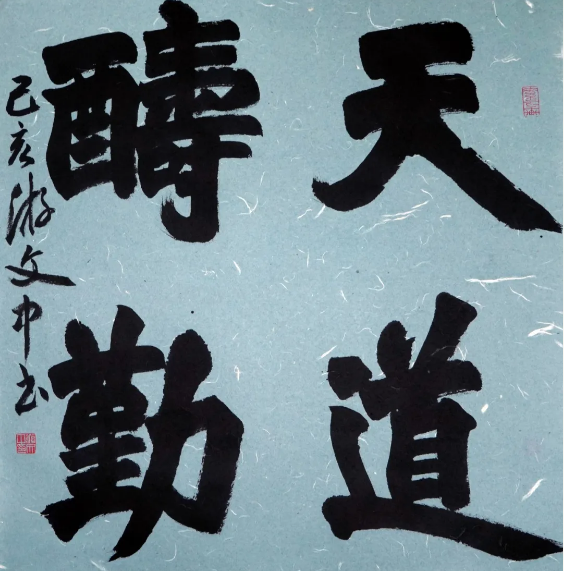 天道
醻勤
己亥游文中书